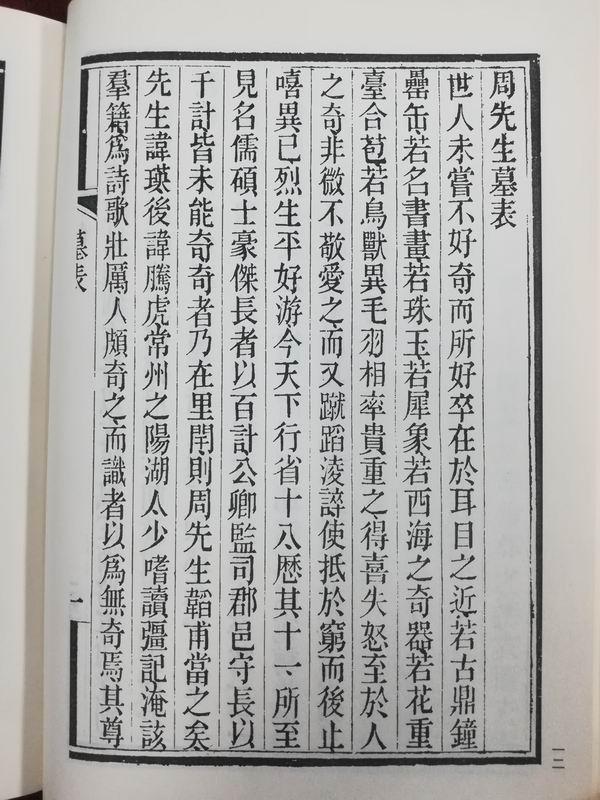 周先生墓表
世人未嘗不好奇而所好卒在於耳目之近若古鼎鐘
罍缶若名書畫若珠玉若犀象若西海之奇器若花重
臺合苞若鳥獸異毛羽相率貴重之得喜失怒至於人
之奇非微不敬愛之而又蹴蹈凌誶使抵於窮而後止
嘻異已烈生平好游今天下行省十八歷其十一所至
見名儒碩士豪傑長者以百計公卿監司郡邑守長以
千計皆未能奇奇者乃在里閈則周先生韜甫當之矣
先生諱瑛後諱騰虎常州之陽湖人少嗜讀彊記淹該
羣籍爲詩歌壯厲人頗奇之而識者以爲無奇焉其尊
墓表
一
一二